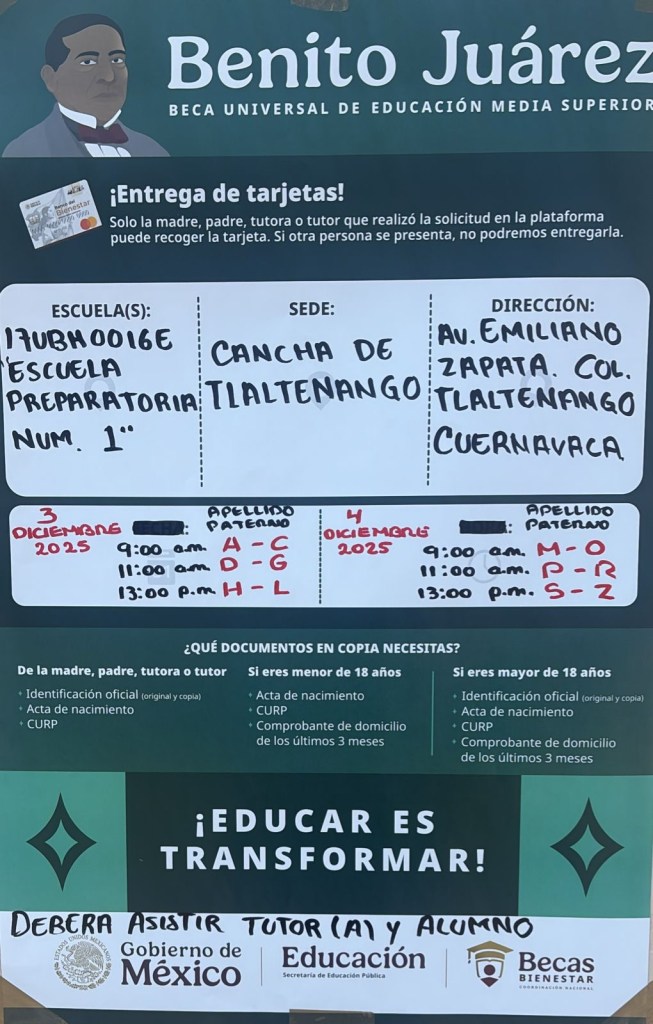 Benito Juárez
BECA UNIVERSAL DE EDUCACIÓN MEDIA SUPERIOR
¡Entrega de tarjetas!
Solo la madre, padre, tutora o tutor que realizó la solicitud en la plataforma
puede recoger la tarjeta. Si otra persona se presenta, no podremos entregarla.
Bienestar
ESCUELA(S):
17UBH0016E
"ESCUELA
PREPARATORIA
NUM. 1"
SEDE:
CANCHA DE
TLALTENANGO
DIRECCIÓN:
AV. EMILIANO
ZAPATA. COL.
TLALTENANGO
CUERNAVACA
3
DICIEMBRE
2025
APELLIDO
PATERNO
9:00 a.m. A - C
11:00 a.m. D - G
13:00 p.m. H - L
4
DICIEMBRE
2025
APELLIDO
PATERNO
9:00 a.m. M - O
11:00 a.m. P - R
13:00 p.m. S - Z
¿QUÉ DOCUMENTOS EN COPIA NECESITAS?
De la madre, padre, tutora o tutor
Identificación oficial (original y copia)
Acta de nacimiento
CURP
Si eres menor de 18 años
Acta de nacimiento
CURP
Comprobante de domicilio
de los últimos 3 meses
Si eres mayor de 18 años
Identificación oficial (original y copia)
Acta de nacimiento
CURP
Comprobante de domicilio
de los últimos 3 meses
¡EDUCAR ES
TRANSFORMAR!
DEBERA ASISTIR TUTOR (A) Y ALUMNO
ESTADOS UNIDOS MEXICANOS
Gobierno de
México
Educación
Secretaría de Educación Pública
Becas
BIENESTAR
COORDINACIÓN NACIONAL